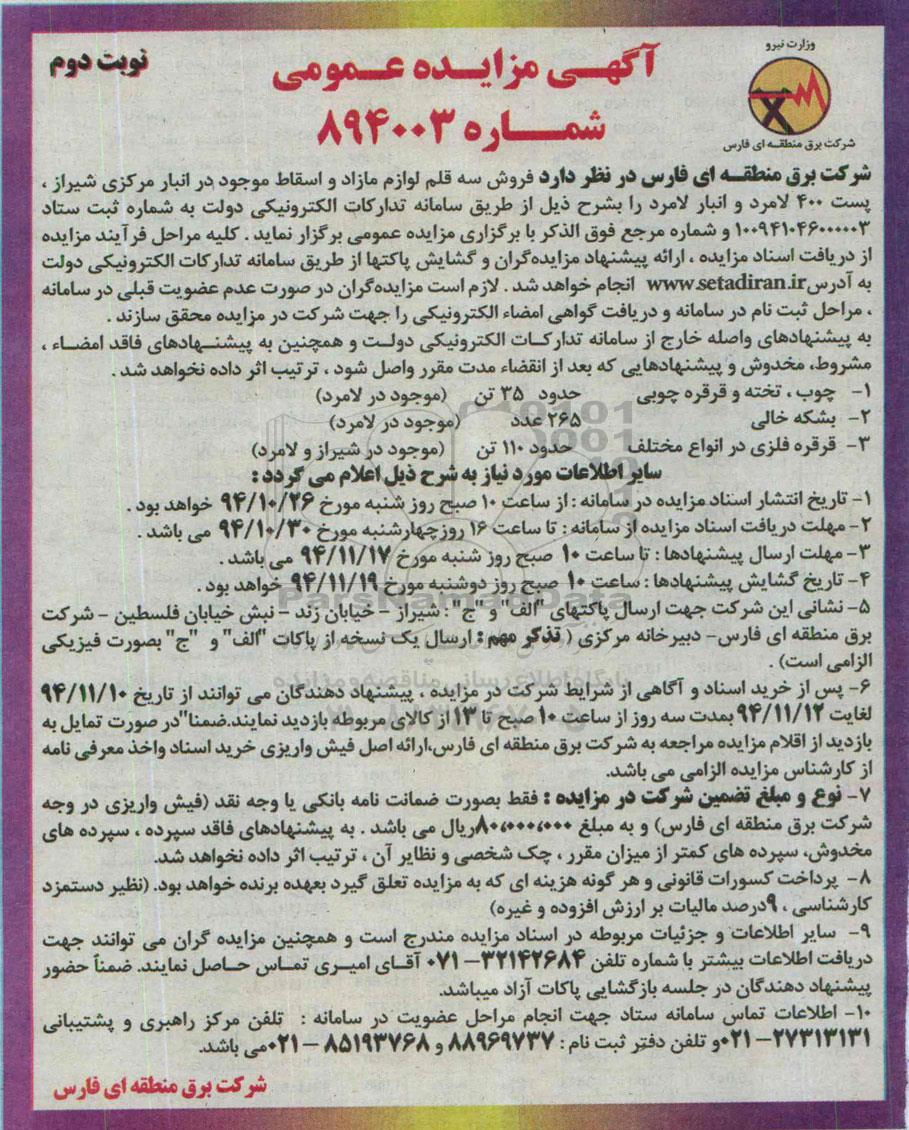 وزارت نیرو
شرکت برق منطقه ای فارس
آگهی مزایده عمومی
شماره ۸۹۴۰۰۳
نوبت دوم
شرکت برق منطقه ای فارس در نظر دارد فروش سه قلم لوازم مازاد و اسقاط موجود در انبار مرکزی شیراز ،
پست ۴۰۰ لامرد و انبار لامرد را بشرح ذیل از طریق سامانه تدارکات الکترونیکی دولت به شماره ثبت ستاد
۱۰۰۹۴۱۰۴۶۰۰۰۰۰۳ و شماره مرجع فوق الذکر با برگزاری مزایده عمومی برگزار نماید . کلیه مراحل فرآیند مزایده
از دریافت اسناد مزایده ، ارائه پیشنهاد مزایده‌گران و گشایش پاکتها از طریق سامانه تدارکات الکترونیکی دولت
به آدرس www.setadiran.ir انجام خواهد شد . لازم است مزایده‌گران در صورت عدم عضویت قبلی در سامانه
، مراحل ثبت نام در سامانه و دریافت گواهی امضاء الکترونیکی را جهت شرکت در مزایده محقق سازند .
به پیشنهادهای واصله خارج از سامانه تدارکات الکترونیکی دولت و همچنین به پیشنهادهای فاقد امضاء ،
مشروط، مخدوش و پیشنهادهایی که بعد از انقضاء مدت مقرر واصل شود ، ترتیب اثر داده نخواهد شد .
۱- چوب ، تخته و قرقره چوبی حدود ۳۵ تن (موجود در لامرد)
۲- بشکه خالی ۲۶۵ عدد (موجود در لامرد)
۳- قرقره فلزی در انواع مختلف حدود ۱۱۰ تن (موجود در شیراز و لامرد)
سایر اطلاعات مورد نیاز به شرح ذیل اعلام می گردد :
۱- تاریخ انتشار اسناد مزایده در سامانه : از ساعت ۱۰ صبح روز شنبه مورخ ۹۴/۱۰/۲۶ خواهد بود .
۲- مهلت دریافت اسناد مزایده از سامانه : تا ساعت ۱۶ روزچهارشنبه مورخ ۹۴/۱۰/۳۰ می باشد .
۳- مهلت ارسال پیشنهادها : تا ساعت ۱۰ صبح روز شنبه مورخ ۹۴/۱۱/۱۷ می باشد .
۴- تاریخ گشایش پیشنهادها : ساعت ۱۰ صبح روز دوشنبه مورخ ۹۴/۱۱/۱۹ خواهد بود .
۵- نشانی این شرکت جهت ارسال پاکتهای "الف" و "ج" : شیراز - خیابان زند - نبش خیابان فلسطین - شرکت
برق منطقه ای فارس- دبیرخانه مرکزی ( تذکر مهم : ارسال یک نسخه از پاکات "الف" و "ج" بصورت فیزیکی
الزامی است) .
۶- پس از خرید اسناد و آگاهی از شرایط شرکت در مزایده ، پیشنهاد دهندگان می توانند از تاریخ ۹۴/۱۱/۱۰
لغایت ۹۴/۱۱/۱۲ بمدت سه روز از ساعت ۱۰ صبح تا ۱۳ از کالای مربوطه بازدید نمایند.ضمنا"در صورت تمایل به
بازدید از اقلام مزایده مراجعه به شرکت برق منطقه ای فارس،ارائه اصل فیش واریزی خرید اسناد واخذ معرفی نامه
از کارشناس مزایده الزامی می باشد.
۷- نوع و مبلغ تضمین شرکت در مزایده : فقط بصورت ضمانت نامه بانکی یا وجه نقد (فیش واریزی در وجه
شرکت برق منطقه ای فارس) و به مبلغ ۸۰،۰۰۰،۰۰۰ریال می باشد . به پیشنهادهای فاقد سپرده ، سپرده های
مخدوش، سپرده های کمتر از میزان مقرر ، چک شخصی و نظایر آن ، ترتیب اثر داده نخواهد شد.
۸- پرداخت کسورات قانونی و هر گونه هزینه ای که به مزایده تعلق گیرد بعهده برنده خواهد بود. (نظیر دستمزد
کارشناسی ، ۹درصد مالیات بر ارزش افزوده و غیره)
۹- سایر اطلاعات و جزئیات مربوطه در اسناد مزایده مندرج است و همچنین مزایده گران می توانند جهت
دریافت اطلاعات بیشتر با شماره تلفن ۳۲۱۴۲۶۸۴-۰۷۱ آقای امیری تماس حاصل نمایند. ضمناً حضور
پیشنهاد دهندگان در جلسه بازگشایی پاکات آزاد میباشد.
۱۰- اطلاعات تماس سامانه ستاد جهت انجام مراحل عضویت در سامانه : تلفن مرکز راهبری و پشتیبانی
۲۷۳۱۳۱۳۱-۰۲۱و تلفن دفتر ثبت نام : ۸۸۹۶۹۷۳۷ و ۸۵۱۹۳۷۶۸ -۰۲۱می باشد.
شرکت برق منطقه ای فارس